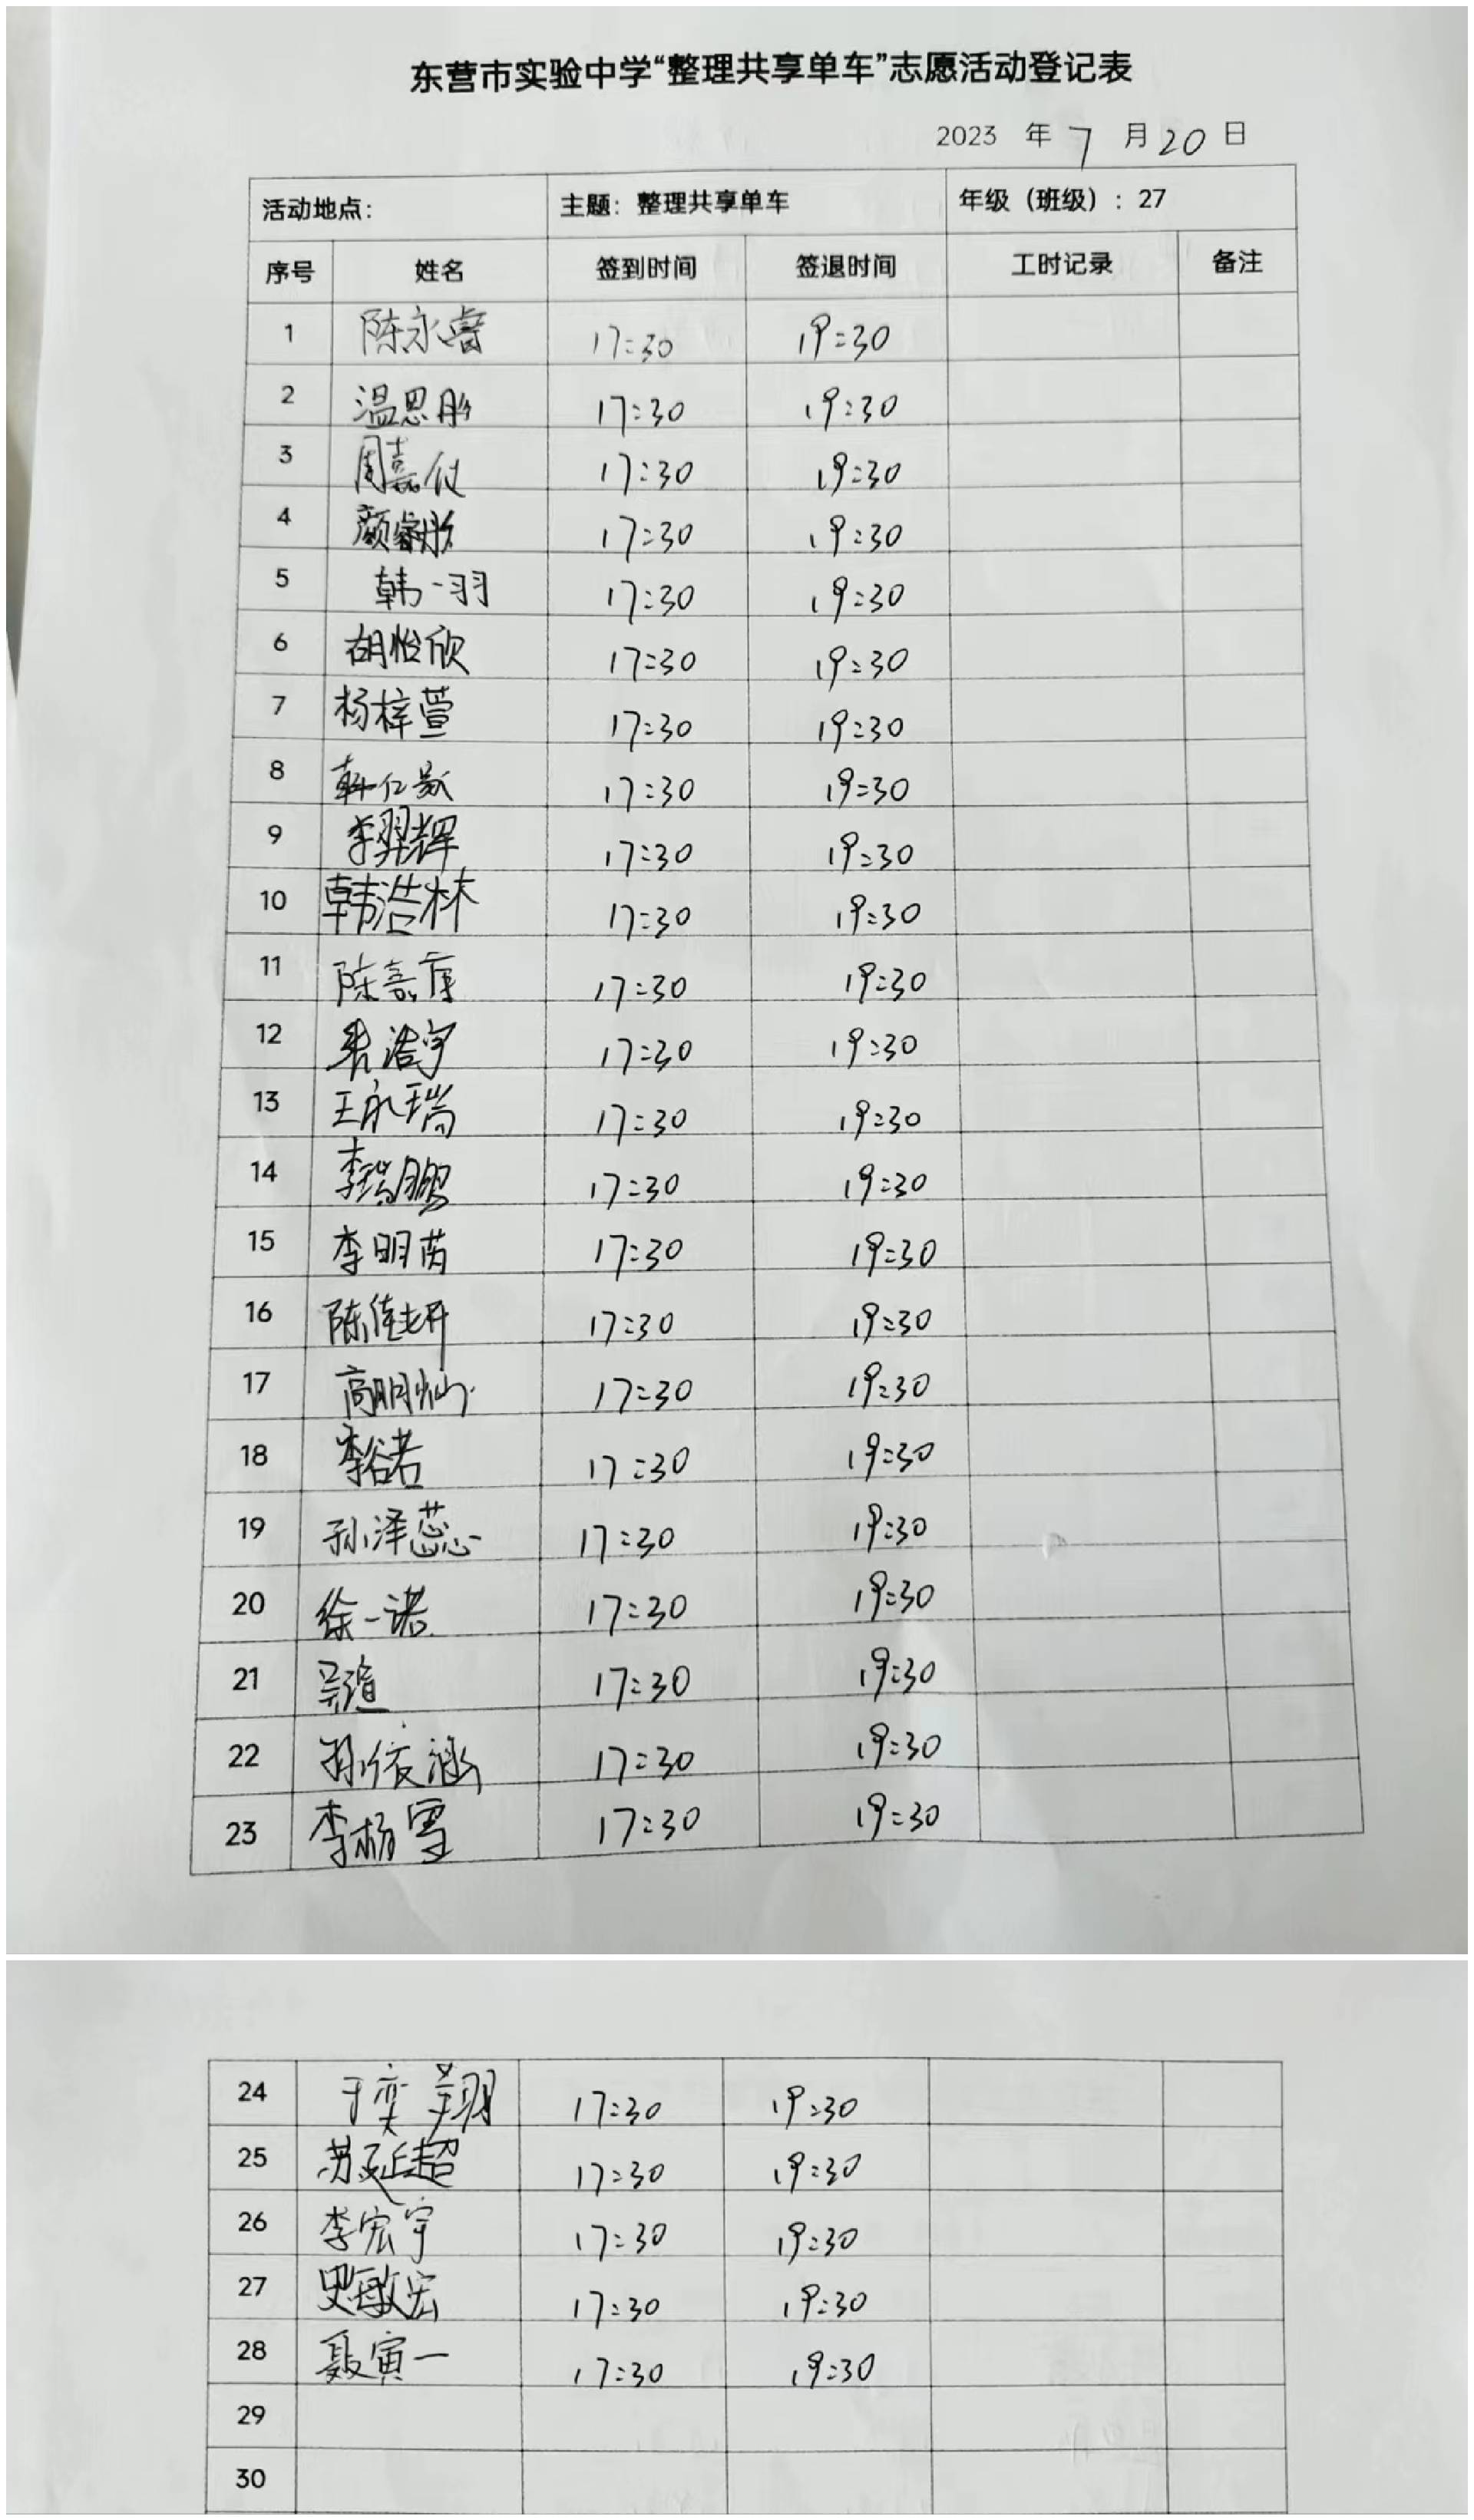 东营市实验中学“整理共享单车”志愿活动登记表
2023 年 7 月 20 日
活动地点： 主题：整理共享单车 年级（班级）：27
序号 姓名 签到时间 签退时间 工时记录 备注
1 陈永睿 17:30 19:30
2 温思彤 17:30 19:30
3 周嘉仪 17:30 19:30
4 颜睿彤 17:30 19:30
5 韩一羽 17:30 19:30
6 胡怡欣 17:30 19:30
7 杨梓萱 17:30 19:30
8 17:30 19:30
9 李羿辉 17:30 19:30
10 韩浩林 17:30 19:30
11 陈嘉库 17:30 19:30
12 浩宇 17:30 19:30
13 王永瑞 17:30 19:30
14 李瑞鹏 17:30 19:30
15 李明芮 17:30 19:30
16 陈佳妍 17:30 19:30
17 高明灿 17:30 19:30
18 李谷若 17:30 19:30
19 孙泽蕊 17:30 19:30
20 徐一诺 17:30 19:30
21 17:30 19:30
22 孙依涵 17:30 19:30
23 李杨雪 17:30 19:30
24 于奕翔 17:30 19:30
25 苏延超 17:30 19:30
26 李宏宇 17:30 19:30
27 史敏宏 17:30 19:30
28 聂寅一 17:30 19:30
29
30